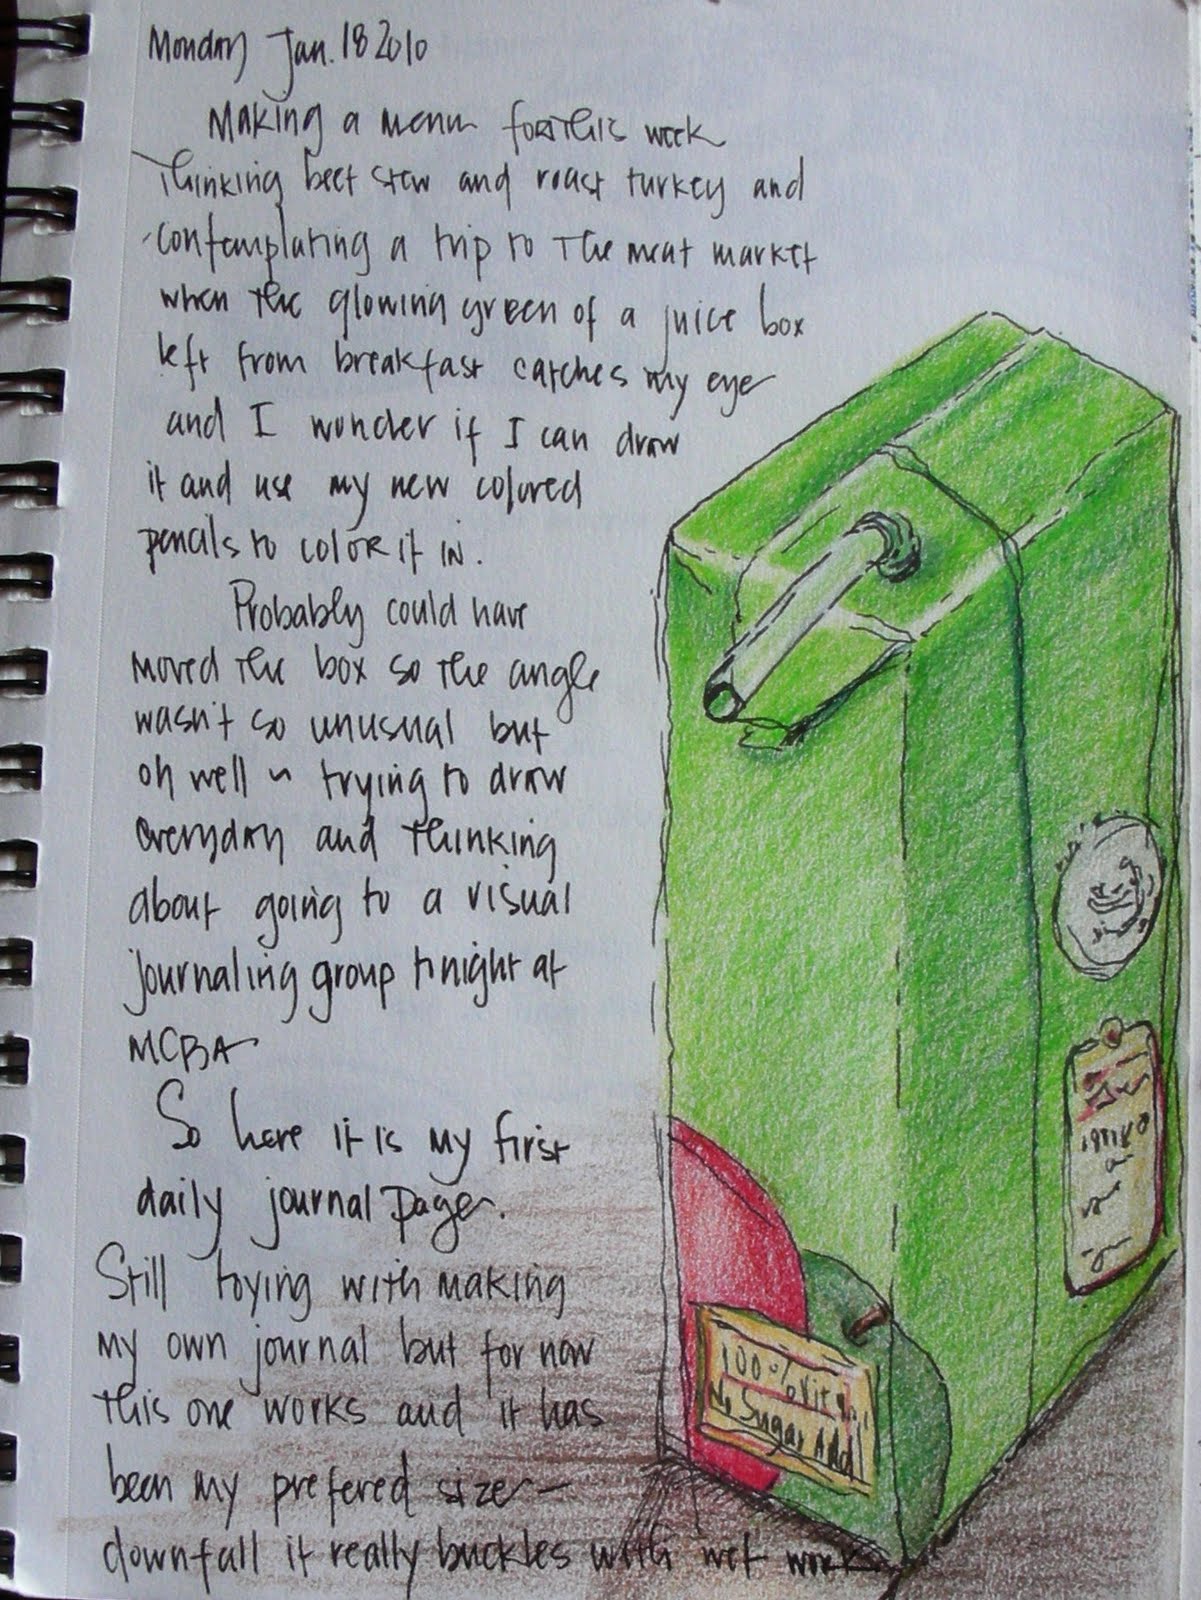 Monday Jan. 18 2010
Making a menu for this week
Thinking beef stew and roast turkey and
contemplating a trip to the meat market
when the glowing green of a juice box
left from breakfast catches my eye
and I wonder if I can draw
it and use my new colored
pencils to color it in.
Probably could have
moved the box so the angle
wasn't so unusual but
oh well ~ trying to draw
everyday and thinking
about going to a visual
journaling group tonight at
MCBA
So here it is my first
daily journal page.
Still toying with making
my own journal but for now
this one works and it has
been my prefered size —
downfall it really buckles with wet work
100% Vit
No Sugar Add